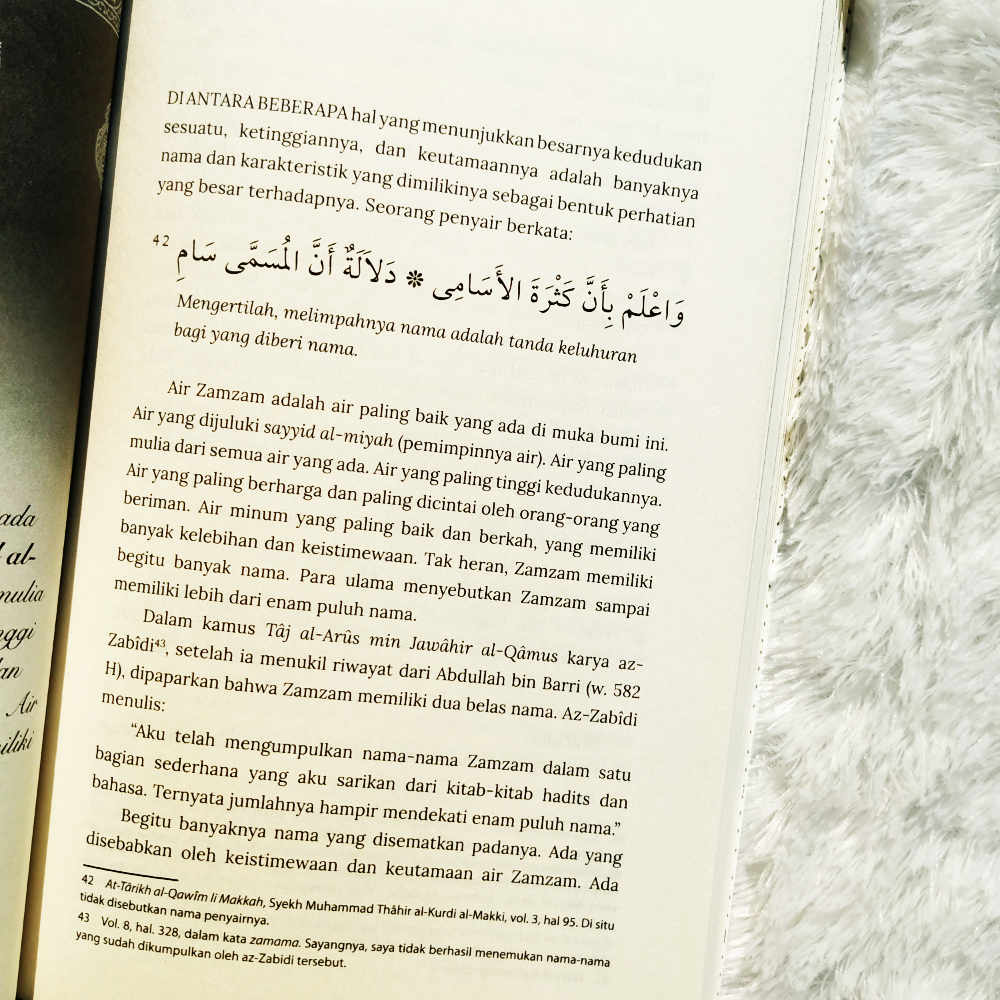 ada
al-
mulia
nggi
dan
Air
miliki
DI ANTARA BEBERAPA hal yang menunjukkan besarnya kedudukan
sesuatu, ketinggiannya, dan keutamaannya adalah banyaknya
nama dan karakteristik yang dimilikinya sebagai bentuk perhatian
yang besar terhadapnya. Seorang penyair berkata:
وَاعْلَمْ بِأَنَّ كَثْرَةَ الأَسَامِى ❋ دَلاَلَةٌ أَنَّ الْمُسَمَّى سَامِ 42
Mengertilah, melimpahnya nama adalah tanda keluhuran
bagi yang diberi nama.
Air Zamzam adalah air paling baik yang ada di muka bumi ini.
Air yang dijuluki sayyid al-miyah (pemimpinnya air). Air yang paling
mulia dari semua air yang ada. Air yang paling tinggi kedudukannya.
Air yang paling berharga dan paling dicintai oleh orang-orang yang
beriman. Air minum yang paling baik dan berkah, yang memiliki
banyak kelebihan dan keistimewaan. Tak heran, Zamzam memiliki
begitu banyak nama. Para ulama menyebutkan Zamzam sampai
memiliki lebih dari enam puluh nama.
Dalam kamus Tâj al-Arûs min Jawâhir al-Qâmus karya az-
Zabîdi43, setelah ia menukil riwayat dari Abdullah bin Barri (w. 582
H), dipaparkan bahwa Zamzam memiliki dua belas nama. Az-Zabîdi
menulis:
“Aku telah mengumpulkan nama-nama Zamzam dalam satu
bagian sederhana yang aku sarikan dari kitab-kitab hadits dan
bahasa. Ternyata jumlahnya hampir mendekati enam puluh nama.”
Begitu banyaknya nama yang disematkan padanya. Ada yang
disebabkan oleh keistimewaan dan keutamaan air Zamzam. Ada
42 At-Târikh al-Qawîm li Makkah, Syekh Muhammad Thâhir al-Kurdi al-Makki, vol. 3, hal 95. Di situ
tidak disebutkan nama penyairnya.
43 Vol. 8, hal. 328, dalam kata zamama. Sayangnya, saya tidak berhasil menemukan nama-nama
yang sudah dikumpulkan oleh az-Zabidi tersebut.